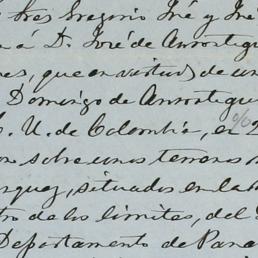 tres Gregorio José y José
a á D. José de Arrostegui
es, que en virtud de un
Domingo de Arrostegui
E. U. de Colombia, en 2
sobre unos terrenos
quez, situados en la
tro de los límites, del
Departamento de Pana